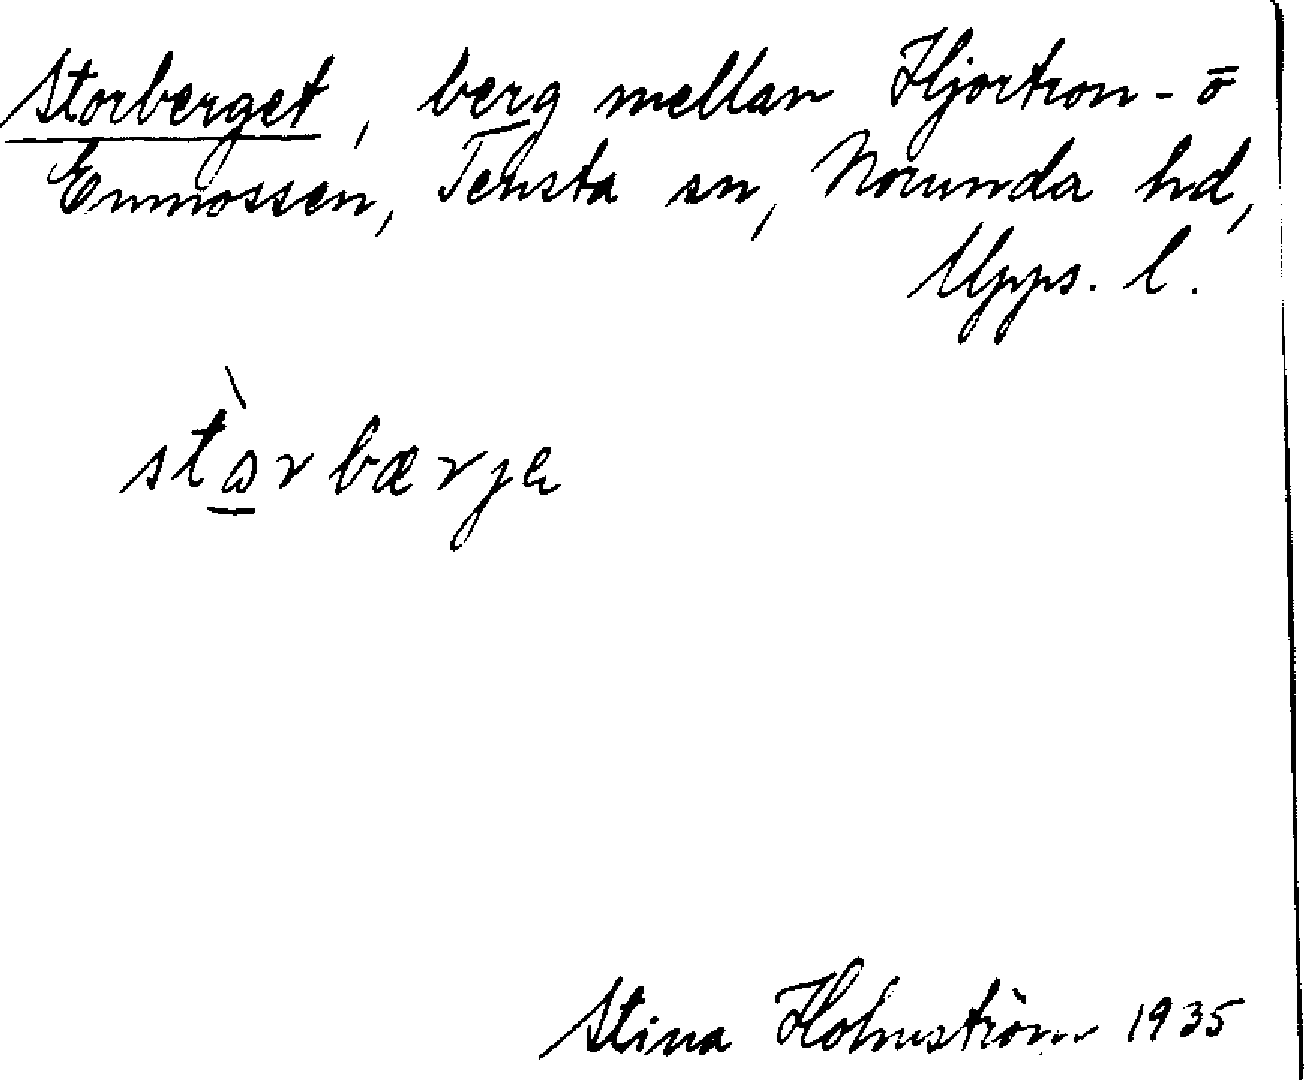 Storberget, berg mellan Hjortron- o
Enmossen, Tensta sn, Norunda hd,
Upps. l.
stòrbærje
Stina Holmström 1935